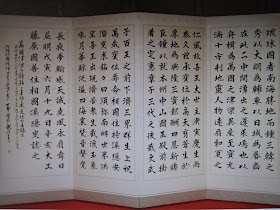 琉球國者南海勝地而鍾三韓之
秀以大明為輔車以日域為脣齒
在此二中間湧出之蓬萊嶋也以
舟楫為萬國之津梁異産至寶充
滿十方刹地靈人物遠扇和夏之
仁風故吾王大世主庚寅慶生尚
泰久茲承寶位於高天育蒼生於
厚地為興隆三寶報酬四恩新鑄
巨鐘以就本州中山國王殿前掛
着之定憲章于三代之後戢文武
于百王之前下濟三界群生上祝
萬歳寶位辱命相國住持溪隱安
潛叟求銘々曰須弥南畔世界洪
宏吾王出現濟苦衆生截流玉象
吼月華鯨泛溢四海震梵音聲覺
長夜夢輸感天誠堯風永扇舜日
益明戊寅六月十九日辛亥大工
藤原國善住相國溪隱叟誌之